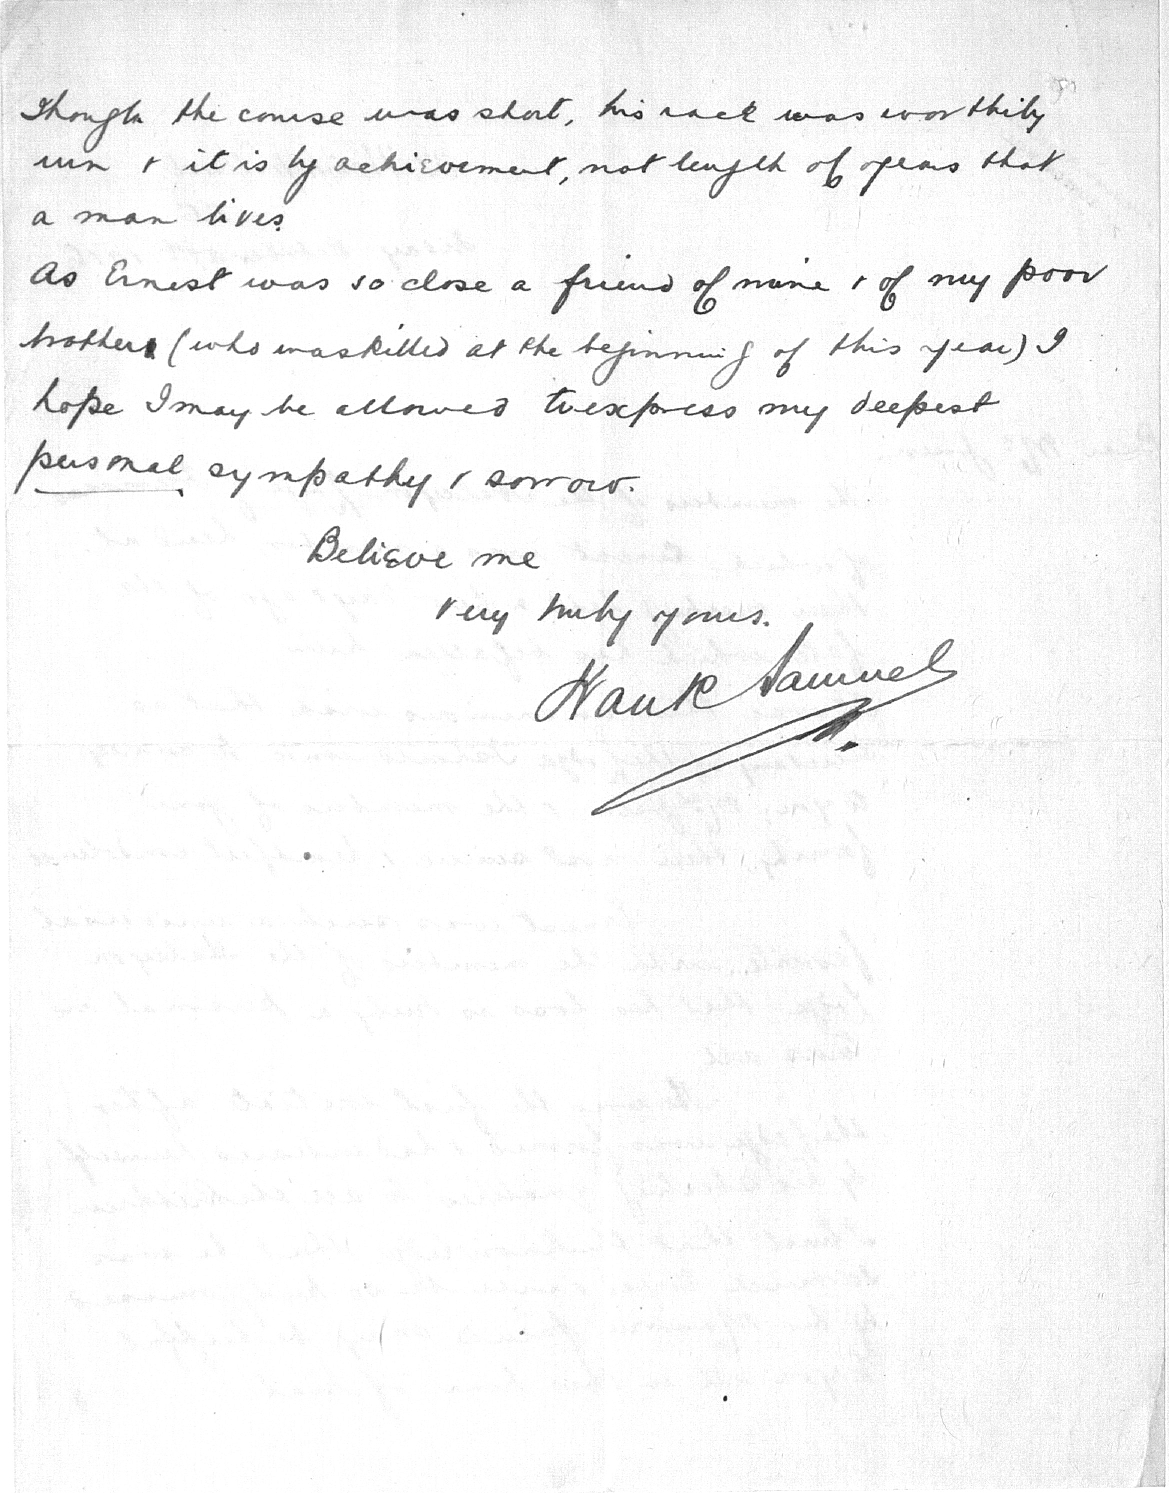 Though the course was short, his race was worthily
run & it is by achievement, not length of years that
a man lives.
As Ernest was so close a friend of mine & of my poor
brother (who was killed at the beginning of this year) I
hope I may be allowed to express my deepest
personal sympathy & sorrow.
Believe me
very truly yours.
Samuel